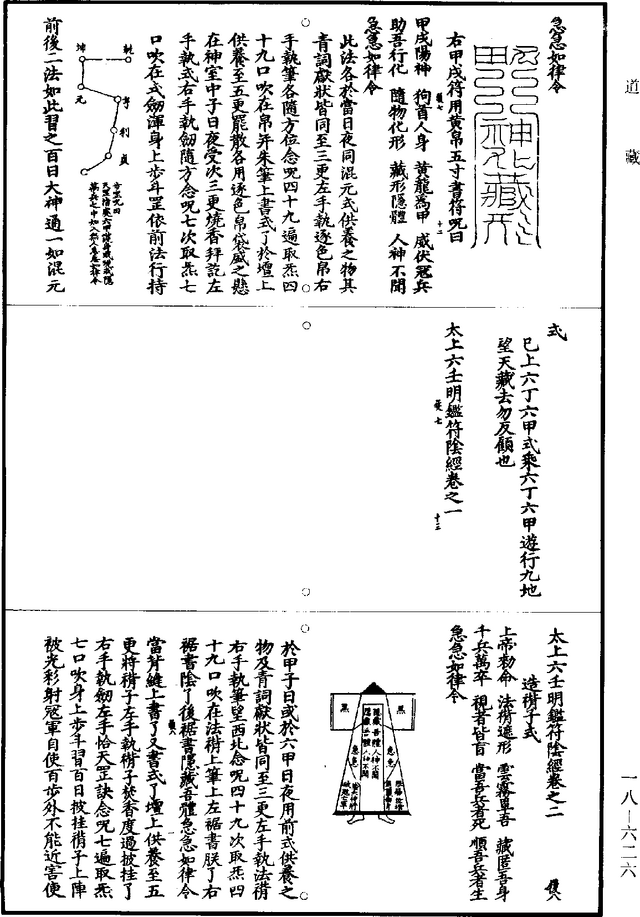 道藏
急急如律令
右甲戌符用黃帛五寸書符呪曰
甲戌陽神　狗首人身　黃龍為甲　威伏冠兵
助吾行化　隨物化形　藏形隱體　人神不聞
急急如律令
此法各於當日夜同混元式供養之物其
青詞獻狀皆同至三更左手執逐色帛右
手執筆各隨方位念呪四十九遍取炁四
十九口吹在帛并朱筆上書式了於壇上
供養至五更罷散各用逐色帛袋盛之懸
在神室中子日夜受次三更燒香拜訖左
手執式右手執劒隨方念呪七次取炁七
口吹在式劒渾身上步斗罡依前法行持
前後二法如此習之百日大神通一如混元
式
已上六丁六甲式乘六丁六甲遊行九地
望天藏去勿反顧也
太上六壬明鑑符陰經卷之一
太上六壬明鑑符陰經卷之二
造褙子式
上帝勑命　法褙遮形　雲霧罩吾　藏匿吾身
千兵萬卒　視者皆盲　當吾兵者死　順吾兵者生
急急如律令
黑
黑
於甲子日或於六甲日夜用前式供養之
物及青詞獻狀皆同至三更左手執法褙
右手執筆望西北念呪四十九次取炁四
十九口吹在法褙上筆上左裾書朕了右
裾書陰了後裾書隱藏吾體急急如律令
當背縫上書了又書式了壇上供養至五
更將褙子左手執褙子焚香度過披挂了
右手執劒左手恰天罡訣念呪七遍取炁
七口吹身上步斗習百日披挂褙子上陣
被光彩射冠軍自使百步外不能近害使
一八－六二六